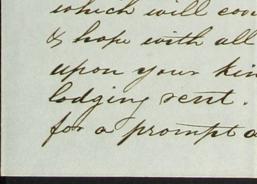 which will con
& hope with all
upon your kin
lodging rent.
for a prompt a